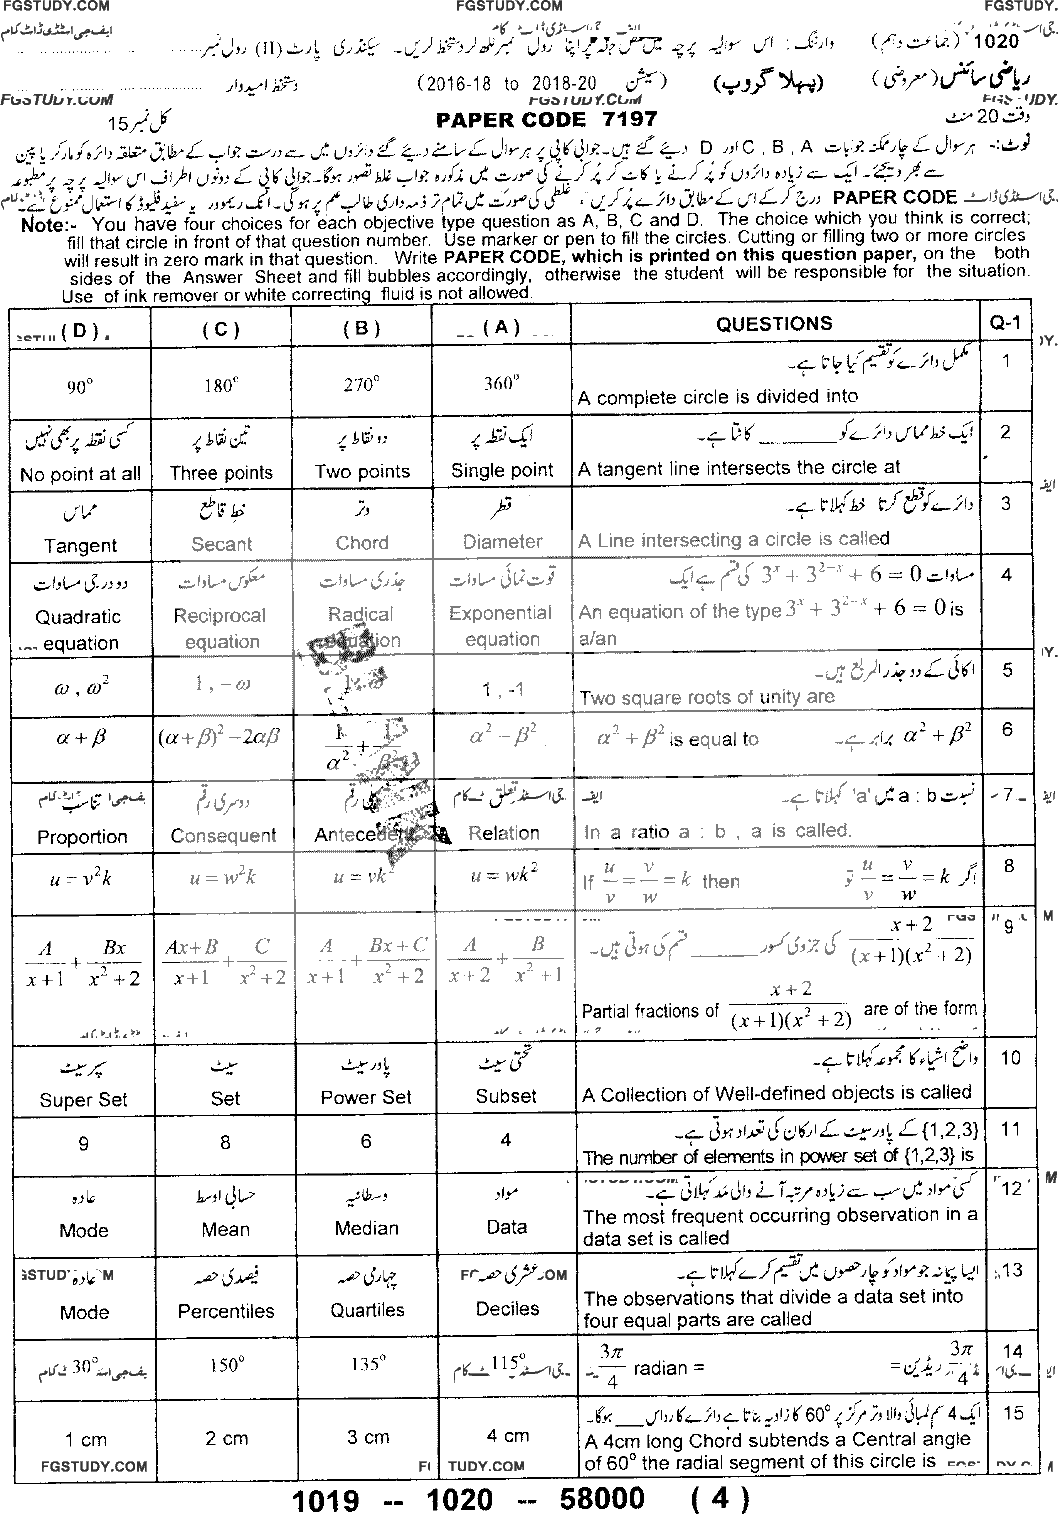 FGSTUDY.COM FGSTUDY.COM FGSTUDY.
1020 (جماعت دہم) وارننگ: اس سوالیہ پرچہ پر اپنا رول نمبر لکھ کر دستخط کریں۔ سیکنڈری پارٹ (II) رول نمبر
ریاضی سائنس (معروضی) (پہلا گروپ) (سیشن 2016-18 to 2018-20) دستخط امیدوار
FGSTUDY.COM FGSTUDY.COM
وقت 20 منٹ PAPER CODE 7197 کل نمبر 15
نوٹ:- ہر سوال کے چار ممکنہ جوابات A , B , C اور D دیئے گئے ہیں۔ جوابی کاپی پر ہر سوال کے سامنے دیئے گئے دائروں میں سے درست جواب کے مطابق متعلقہ دائرہ کو مارکر یا پین
سے بھر دیجئے۔ ایک سے زیادہ دائروں کو پُر کرنے یا کاٹ کر پُر کرنے کی صورت میں مذکورہ جواب غلط تصور ہوگا۔ جوابی کاپی کے دونوں اطراف اس سوالیہ پرچہ پر مطبوعہ
PAPER CODE درج کر کے اس کے مطابق دائرے پُر کریں، غلطی کی صورت میں تمام تر ذمہ داری طالب علم پر ہوگی۔ انک ریموور یا سفید فلیوڈ کا استعمال ممنوع ہے۔
Note:- You have four choices for each objective type question as A, B, C and D. The choice which you think is correct;
fill that circle in front of that question number. Use marker or pen to fill the circles. Cutting or filling two or more circles
will result in zero mark in that question. Write PAPER CODE, which is printed on this question paper, on the both
sides of the Answer Sheet and fill bubbles accordingly, otherwise the student will be responsible for the situation.
Use of ink remover or white correcting fluid is not allowed.
(D) (C) (B) (A) QUESTIONS Q-1
مکمل دائرے کو تقسیم کیا جاتا ہے۔ 1
90° 180° 270° 360° A complete circle is divided into
کسی نقطہ پر بھی نہیں تین نقاط پر دو نقاط پر ایک نقطہ پر ایک خط مماس دائرے کو ________ کاٹتا ہے۔ 2
No point at all Three points Two points Single point A tangent line intersects the circle at
مماس خط قاطع وتر قطر دائرے کو قطع کرتا خط کہلاتا ہے۔ 3
Tangent Secant Chord Diameter A Line intersecting a circle is called
دو درجی مساوات معکوس مساوات جذری مساوات قوت نمائی مساوات مساوات 3ˣ + 3²⁻ˣ + 6 = 0 کی قسم ہے ایک 4
Quadratic Reciprocal Radical Exponential An equation of the type 3ˣ + 3²⁻ˣ + 6 = 0 is
equation equation equation equation a/an
اکائی کے دو جذر المربع ہیں۔ 5
ω , ω² 1 , −ω 1 , -1 Two square roots of unity are
α + β (α + β)² − 2αβ 1/α² + 1/β² α² − β² α² + β² is equal to α² + β² برابر ہے۔ 6
تناسب دوسری رقم پہلی رقم تعلق نسبت a : b میں 'a' کہلاتا ہے۔ 7
Proportion Consequent Antecedent Relation In a ratio a : b , a is called.
u = v²k u = w²k u = vk² u = wk² If u/v = v/w = k then اگر u/v = v/w = k تو 8
x+2/(x+1)(x²+2) کی جزوی کسور ________ قسم کی ہوتی ہیں۔ 9
A/x+1 + Bx/x²+2 Ax+B/x+1 + C/x²+2 A/x+1 + Bx+C/x²+2 A/x+2 + B/x²+1
Partial fractions of x+2/(x+1)(x²+2) are of the form
سپر سیٹ سیٹ پاور سیٹ تحتی سیٹ واضح اشیاء کا مجموعہ کہلاتا ہے۔ 10
Super Set Set Power Set Subset A Collection of Well-defined objects is called
9 8 6 4 {1,2,3} کے پاور سیٹ کے ارکان کی تعداد ہوتی ہے۔ 11
The number of elements in power set of {1,2,3} is
عادہ حسابی اوسط وسطانیہ مواد کسی مواد میں سب سے زیادہ مرتبہ آنے والی مَد کہلاتی ہے۔ 12
Mode Mean Median Data The most frequent occurring observation in a
data set is called
عادہ فیصدی حصہ چہارمی حصہ عشری حصہ ایسا پیمانہ جو مواد کو چار حصوں میں تقسیم کرے کہلاتا ہے۔ 13
Mode Percentiles Quartiles Deciles The observations that divide a data set into
four equal parts are called
30° 150° 135° 115° 3π/4 radian = 3π/4 ریڈین = 14
ایک 4 سم لمبائی والا وتر مرکز پر 60° کا زاویہ بناتا ہے دائرے کا رداس ___ ہوگا۔ 15
1 cm 2 cm 3 cm 4 cm A 4cm long Chord subtends a Central angle
of 60° the radial segment of this circle is
FGSTUDY.COM
1019 -- 1020 -- 58000 (4)